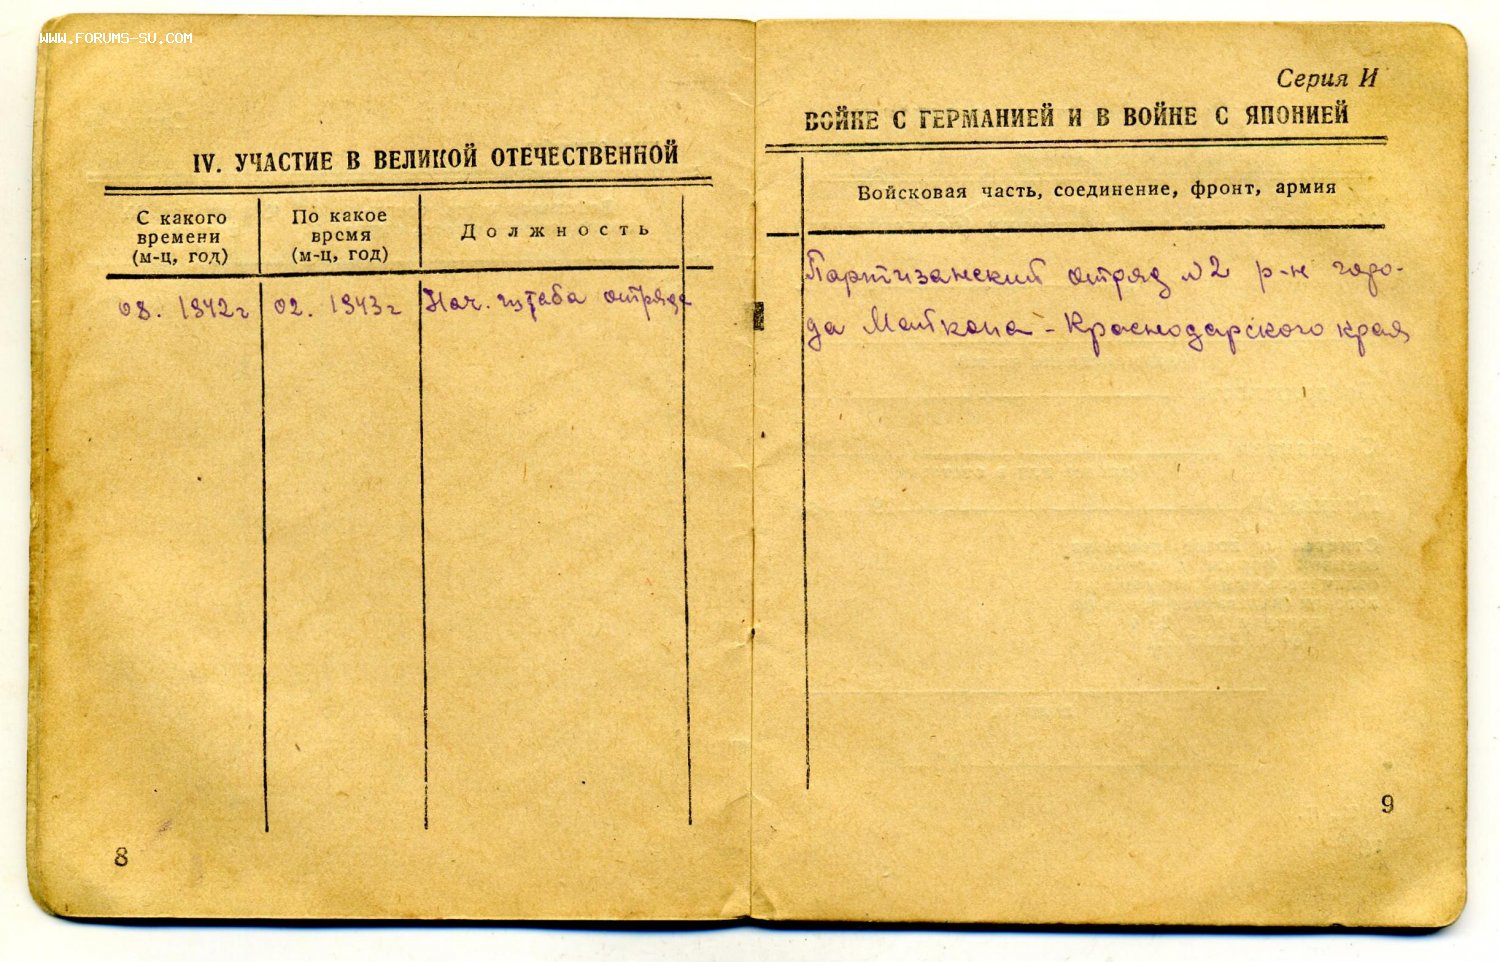 WWW.FORUMS-SU.COM
IV. УЧАСТИЕ В ВЕЛИКОЙ ОТЕЧЕСТВЕННОЙ
С какого
времени
(м-ц, год)
По какое
время
(м-ц, год)
Должность
08. 1942г
02. 1943г
Нач. штаба отряда
8
Серия И
ВОЙНЕ С ГЕРМАНИЕЙ И В ВОЙНЕ С ЯПОНИЕЙ
Войсковая часть, соединение, фронт, армия
Партизанский отряд №2 р-н горо-
да Майкопа - Краснодарского края
9